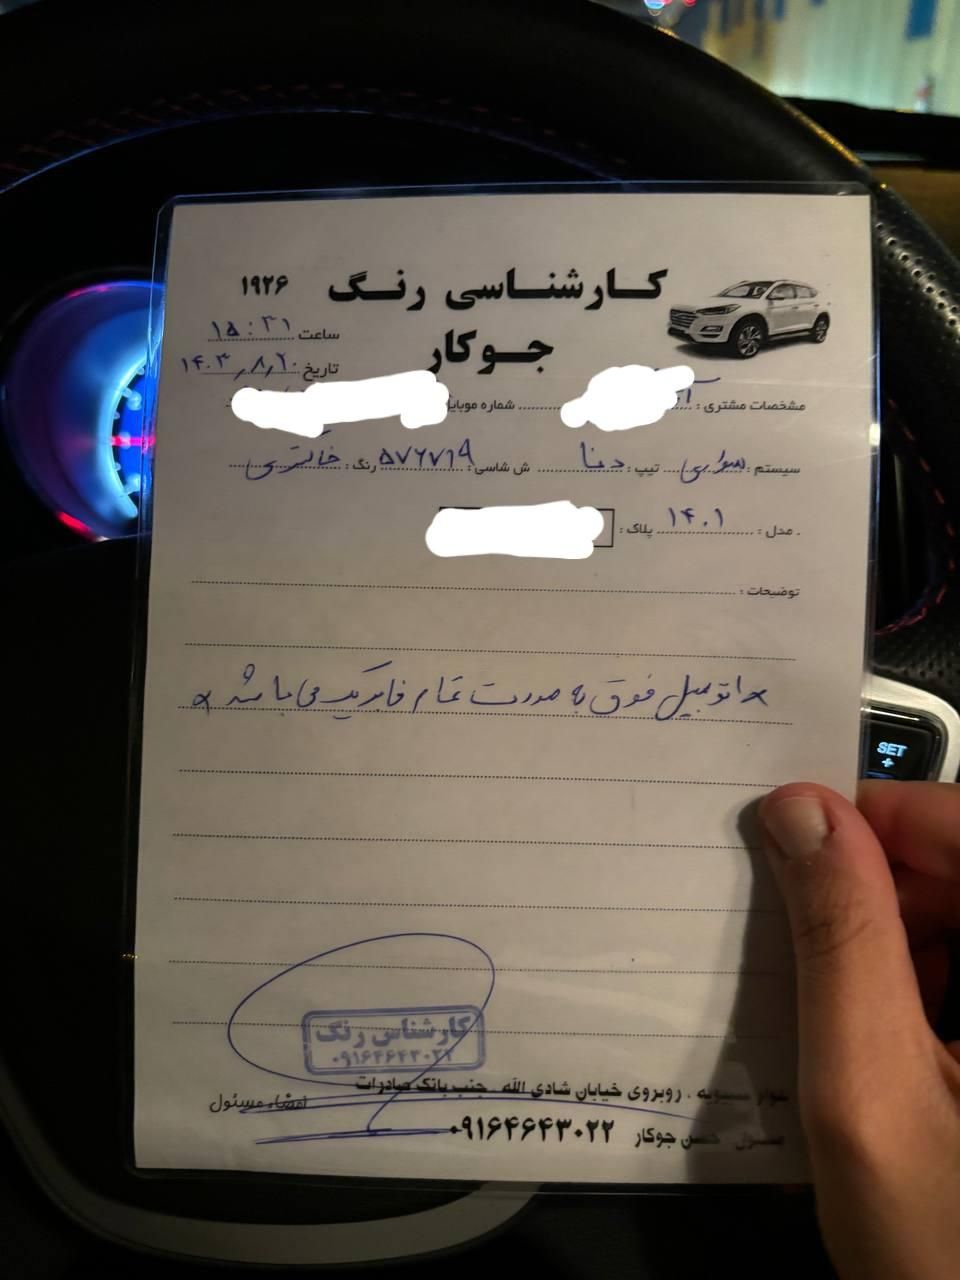 کارشناسی رنگ
جوکار
۱۹۲۶
ساعت ۱۵:۳۱
تاریخ ۱۴۰۳/۸/۲۰
مشخصات مشتری : شماره موبایل
سیستم : سواری تیپ : دنا ش شاسی : ۵۷۶۷۱۹ رنگ : خاکستری
مدل : ۱۴۰۱ پلاک :
توضیحات :
× اتومبیل فوق به صورت تمام فابریک می باشد ×
کارشناس رنگ
۰۹۱۶۴۶۴۳۰۲۲
روبروی خیابان شادی الله . جنب بانک صادرات
امضاء مسئول
حسن جوکار ۰۹۱۶۴۶۴۳۰۲۲
SET
+